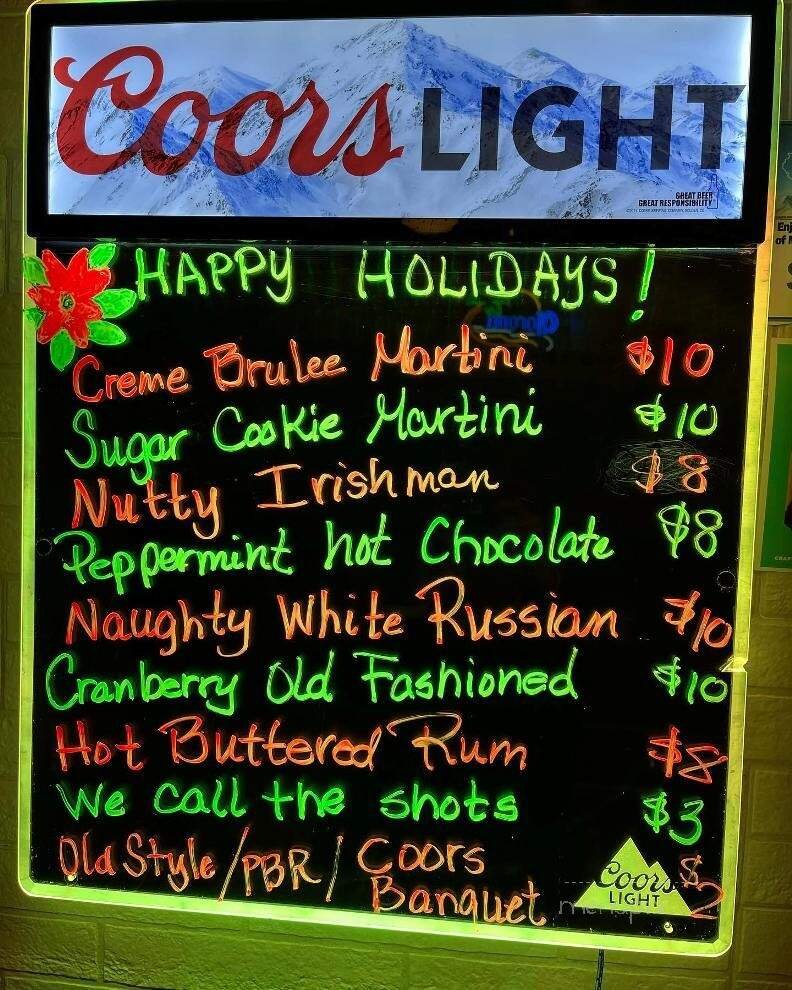 Coors LIGHT
GREAT BEER
GREAT RESPONSIBILITY
HAPPY HOLIDAYS!
Creme Brulee Martini $10
Sugar Cookie Martini $10
Nutty Irishman $8
Peppermint hot Chocolate $8
Naughty White Russian $10
Cranberry Old Fashioned $10
Hot Buttered Rum $8
We call the shots $3
Old Style/PBR/ Coors Banquet $2
Coors
LIGHT